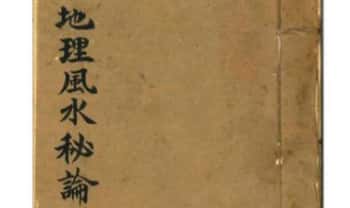 地理風水秘論